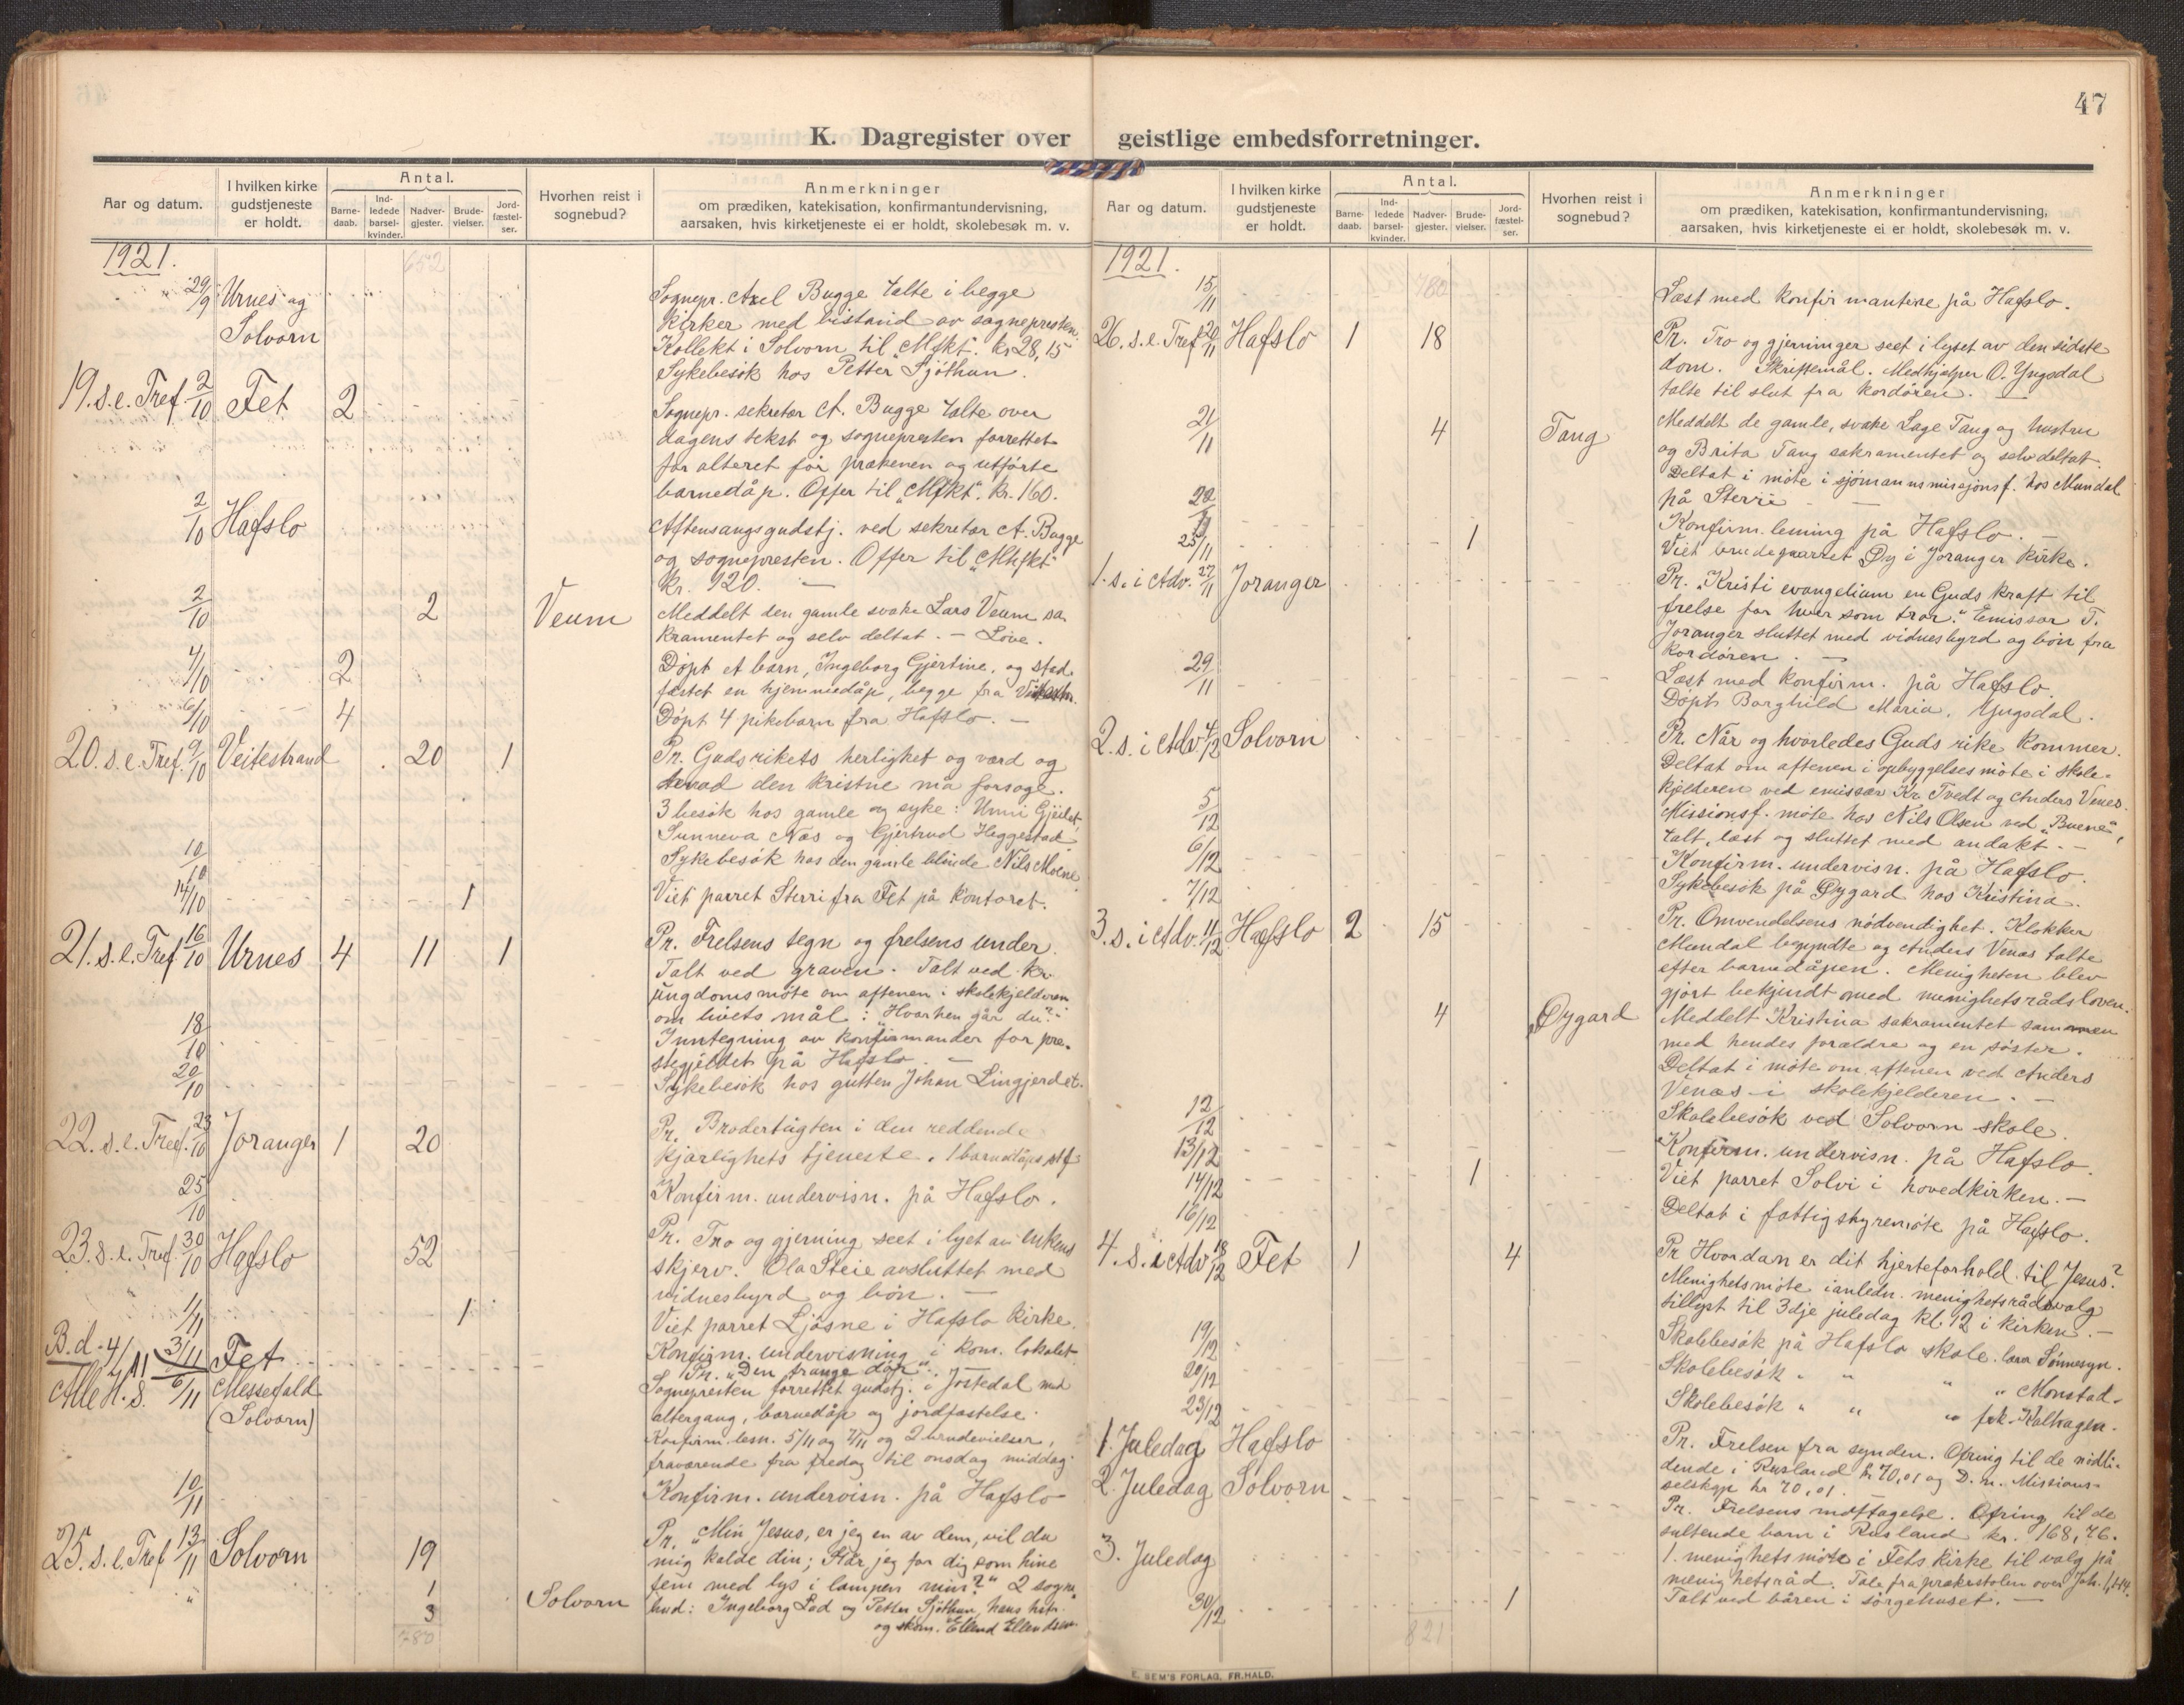 47
K. Dagregister over geistlige embedsforretninger.
Aar og datum.
I hvilken kirke gudstjeneste er holdt.
Antal.
Barne-daab.
Ind-ledede barsel-kvinder.
Nadver-gjester.
Brude-vielser.
Jord-fæstel-ser.
Hvorhen reist i sognebud?
Anmerkninger
om prædiken, katekisation, konfirmantundervisning,
aarsaken, hvis kirketjeneste ei er holdt, skolebesøk m. v.
1921.
652
29/9 Urnes og Solvorn
Sognepr. Axel Bugge talte i begge
kirker med bistand av sognepresten.
Kollekt i Solvorn til "Mfkt". kr 28,15
Sykebesök hos Petter Sjöthun.
19. s. e. Tref. 2/10 Fet 2
Sognepr. sekretær A. Bugge talte over
dagens tekst og sognepresten forrettet
for alteret før prækenen og utførte
barnedåp. Offer til "Mfkt". kr. 160.
2/10 Hafslo
Aftensangsgudstj. ved sekretær A. Bugge
og sognepresten. Offer til "Mfkt"
kr. 120. —
2/10 2 Veum
Meddelt den gamle svake Lars Veum sa-
kramentet og selv deltat. —
4/10 2
Døpt et barn, Ingeborg Gjertine, og stad-
fæstet en hjemmedåp, begge fra
6/10 4
Døpt 4 pikebarn fra Hafslo. —
20. s. e. Tref. 9/10 Veitestrand 20 1
Pr. Guds rikets herlighet og værd og
hvad den kristne må forsage.
3 besök hos gamle og syke: Unni
Sunneva Næs og Gjertrud Heggestad
10/10
Sykebesök hos den gamle blinde Nils Moene
14/10 1
Viet parret Sterri fra Fet på kontoret.
21. s. e. Tref 16/10 Urnes 4 11 1
Pr. Frelsens tegn og frelsens under.
Talt ved graven. Talt ved kr.
ungdomsmöte om aftenen i skolekjelderen
om livets mål: "Hvorhen går du?"
18/10
Inntegning av konfirmander for pre-
stegjeldet på Hafslo. —
20/10
Sykebesök hos gutten Johan Lingjerdet.
22. s. e. Tref. 23/10 Joranger 1 20
Pr. Brodertugten i den reddende
kjærlighets tjeneste. 1 barnedåps
25/10
Konfirm. undervisn. på Hafslo.
23. s. e. Tref. 30/10 Hafslo 52
Pr. Tro og gjerning seet i lyset av enkens
skjerv. Ola Steie avsluttet med
vidnesbyrd og bön. —
1/11 1
Viet parret Ljösne i Hafslo kirke.
3/11
Konfirm. undervisning i kom. lokalet
B. d. 4/11 Fet
Pr. "Den trange dør".
Alle H. s. 6/11 Messefald (Solvorn)
Sognepresten forrettet gudstj. i Jostedal med
altergang, barnedåp og jordfæstelse.
Konfirm. læsn. 5/11 og 7/11 og 2 brudevielser,
fraværende fra fredag til onsdag middag.
10/11
Konfirm. undervisn. på Hafslo
25. s. e. Tref 13/11 Solvorn 19
Pr. "Min Jesus, er jeg en av dem, vil du
mig kalde din; Står jeg for dig som hine
fem med lys i lampen min?" 2 sogne-
" 1 3 Solvorn
bud: Ingeborg Lad og Petter Sjöthun, hans hstr.
og skom. Ellend Ellendsen
780
Aar og datum.
I hvilken kirke gudstjeneste er holdt.
Antal.
Barne-daab.
Ind-ledede barsel-kvinder.
Nadver-gjester.
Brude-vielser.
Jord-fæstel-ser.
Hvorhen reist i sognebud?
Anmerkninger
om prædiken, katekisation, konfirmantundervisning,
aarsaken, hvis kirketjeneste ei er holdt, skolebesøk m. v.
1921.
780
15/11
Læst med konfirmantene på Hafslo.
26. s. e. Tref 20/11 Hafslo 1 18
Pr. Tro og gjerninger seet i lyset av den sidste
dom. Skriftemål. Medhjælper O. Yngsdal
talte til slut fra kordören. —
21/11 4 Tang
Meddelt de gamle, svake Lage Tang og hustru
og Brita Tang sakramentet og selv deltat.
Deltat i möte i sjömannsmisjonsf. hos Mundal
på Sterri —
22/11
Konfirm. læsning på Hafslo. —
25/11 1
Viet brudeparret Øy i Joranger kirke.
1. s. i Adv. 27/11 Joranger
Pr. "Kristi evangelium en Guds kraft til
frelse for hver som tror." Emissær T.
Joranger sluttet med vidnesbyrd og bön fra
kordören. —
29/11
Læst med konfirm. på Hafslo.
Döpt Borghild Maria Yngsdal.
2. s. i Adv 4/12 Solvorn
Pr. Når og hvorledes Guds rike kommer.
Deltat om aftenen i opbyggelsesmöte i skole-
kjelderen ved emissær Kr. Tvedt og Anders Venæs.
5/12
Missionsf. möte hos Nils Olsen ved "Buene",
talt, læst og sluttet med andakt. —
6/12
Konfirm. undervisn. på Hafslo.
7/12
Sykebesök på Øygard hos Kristina.
3. s. i Adv. 11/12 Hafslo 2 15
Pr. Omvendelsens nödvendighet. Klokker
Mundal begyndte og Anders Venæs talte
efter barnedåpen. Menigheten blev
gjort bekjendt med menighetsrådsloven.
4 Øygard
Meddelt Kristina sakramentet sammen
med hendes forældre og en söster.
Deltat i möte om aftenen ved Anders
Venæs i skolekjelderen. —
12/12
Skolebesök ved Solvorn skole.
13/12
Konfirm. undervisn. på Hafslo.
14/12 1
Viet parret Solvi i hovedkirken. —
16/12
Deltat i fattigstyremöte på Hafslo.
4. s. i Adv 18/12 Fet 1 4
Pr Hvordan er dit hjerteforhold til Jesus?
Menighetsmöte i anledn. menighetsrådsvalg
tillyst til 3dje juledag kl. 12 i kirken. —
19/12
Skolebesök på Hafslo skole. lærer Sønnesyn.
20/12
Skolebesök " " " " Monstad.
23/12
Skolebesök " " " frk. Kalhagen.
1. Juledag Hafslo
Pr. Frelsen fra synden. Ofring til de nødli-
dende i Rusland kr 70,01 og D. n. Missions-
selskap kr 70,01.
2. Juledag Solvorn
Pr. Frelsens mottagelse. Ofring til de
sultende barn i Rusland kr. 168,76.
3. Juledag
1. menighetsmöte i Fets kirke til valg på
menighetsråd. Tale fra prækestolen over Joh. 1,
30/12 1
Talt ved båren i sörgehuset. —
821
E. SEM'S FORLAG, FR.HALD.